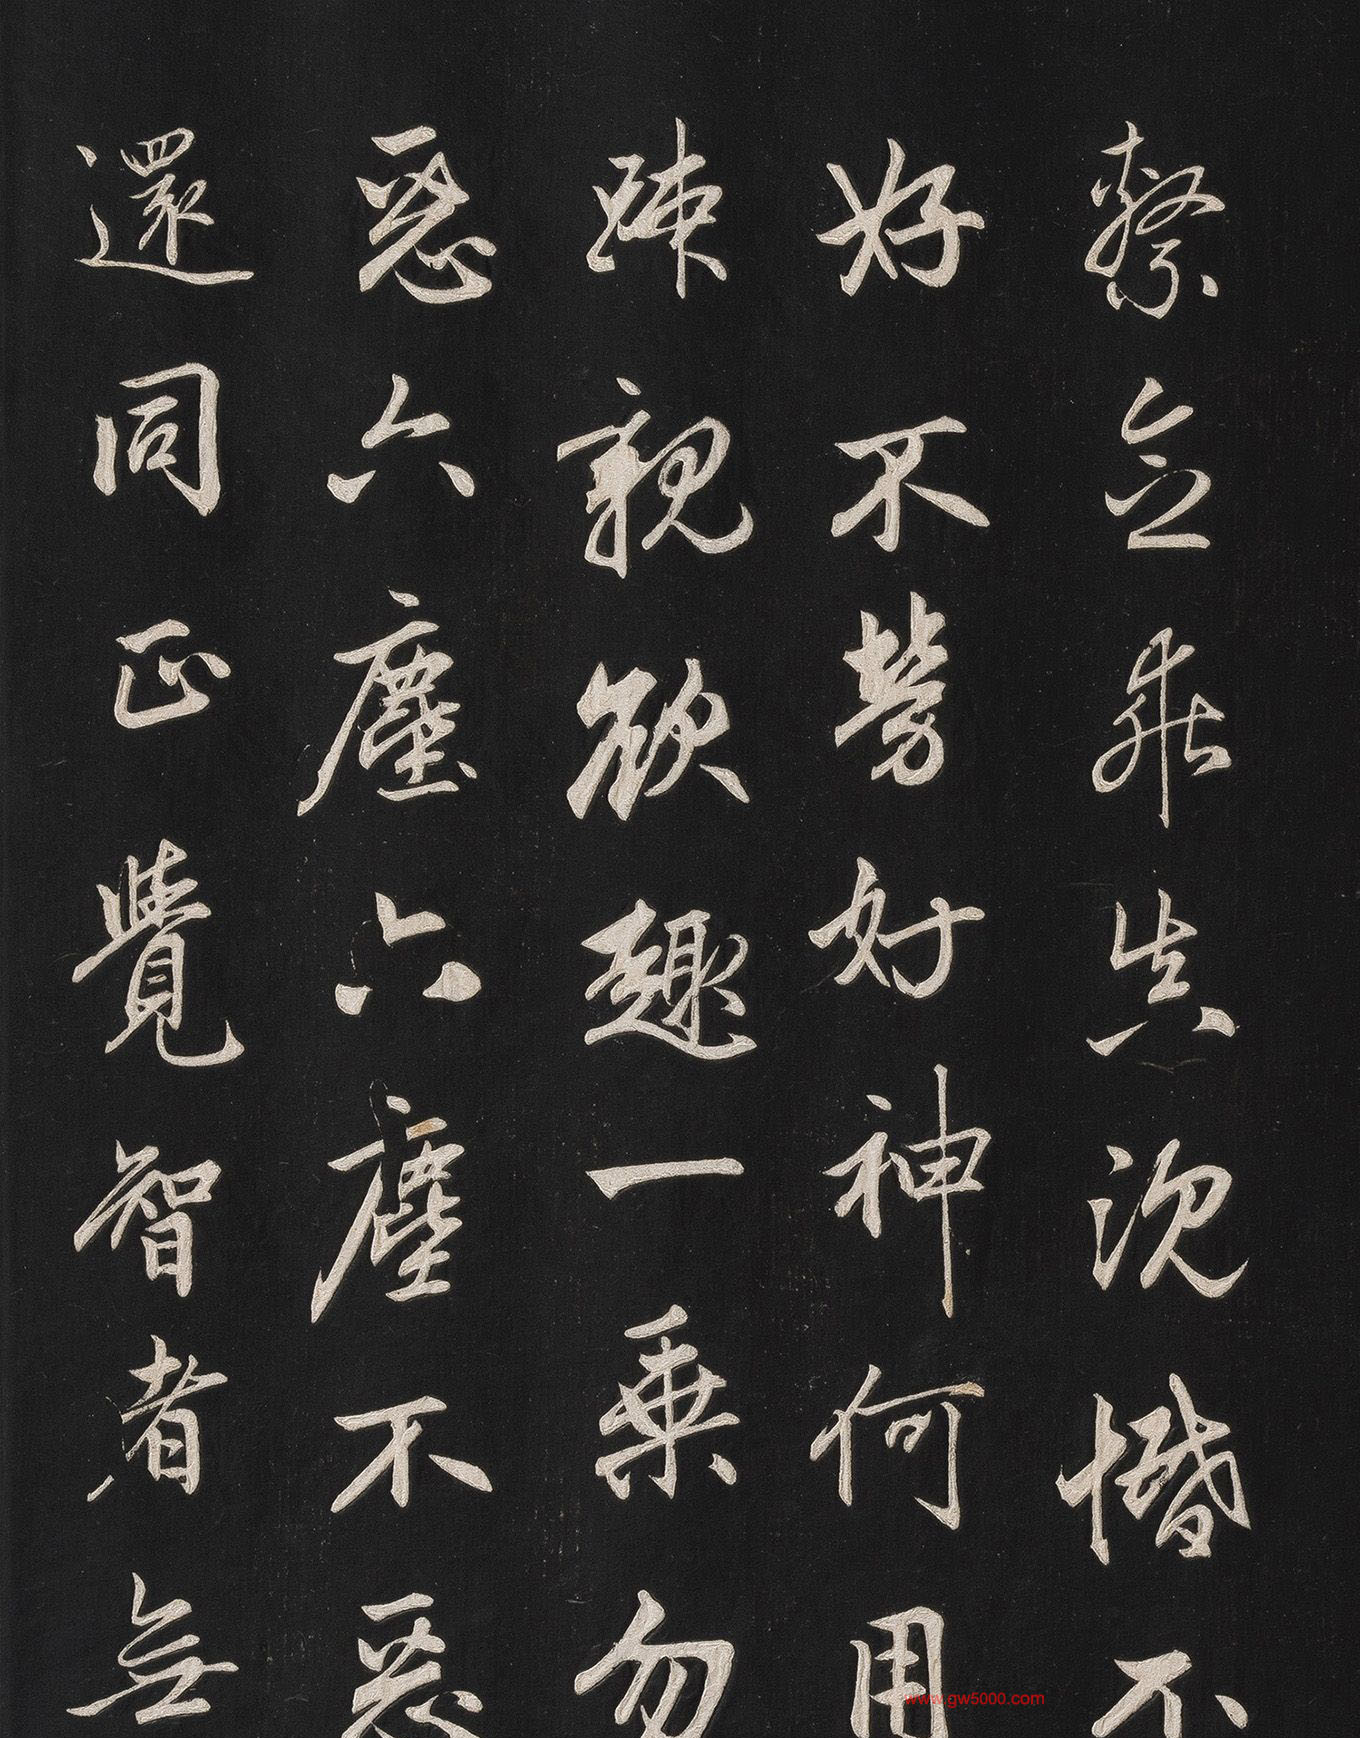 繫念乖真沉惛不
好不勞好神何用
疎親欲趣一乗勿
惡六塵六塵不惡
還同正覺智者無
www.gw5000.com